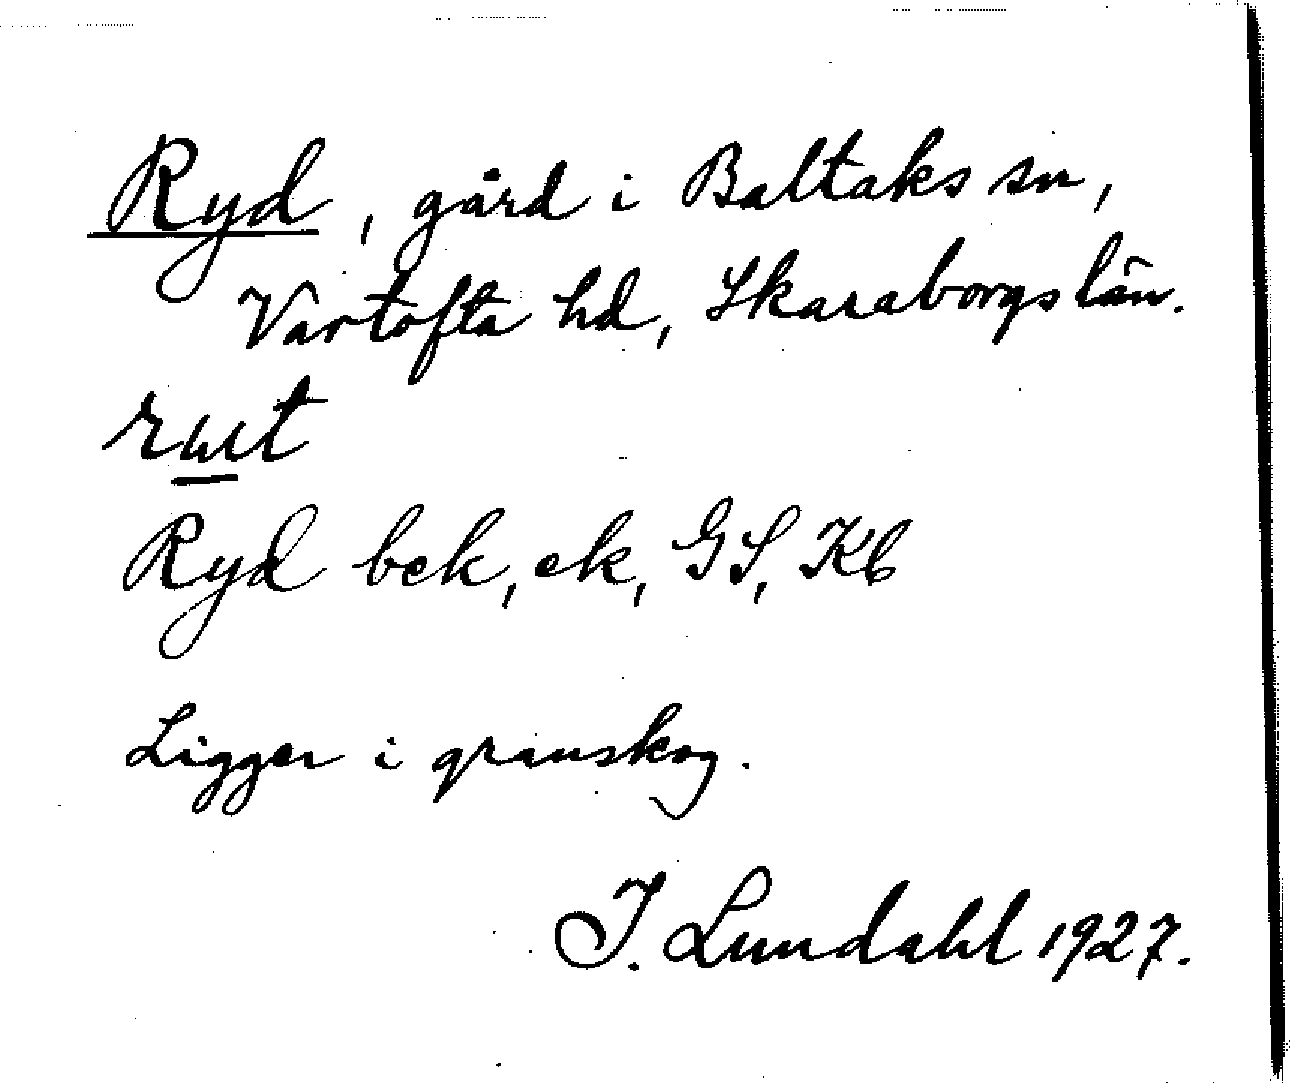 Ryd, gård i Baltaks sn,
Vartofta hd, Skaraborgs län.
Ryd bek, ek, GS, Kb
Ligger i granskog.
I. Lundahl 1927.